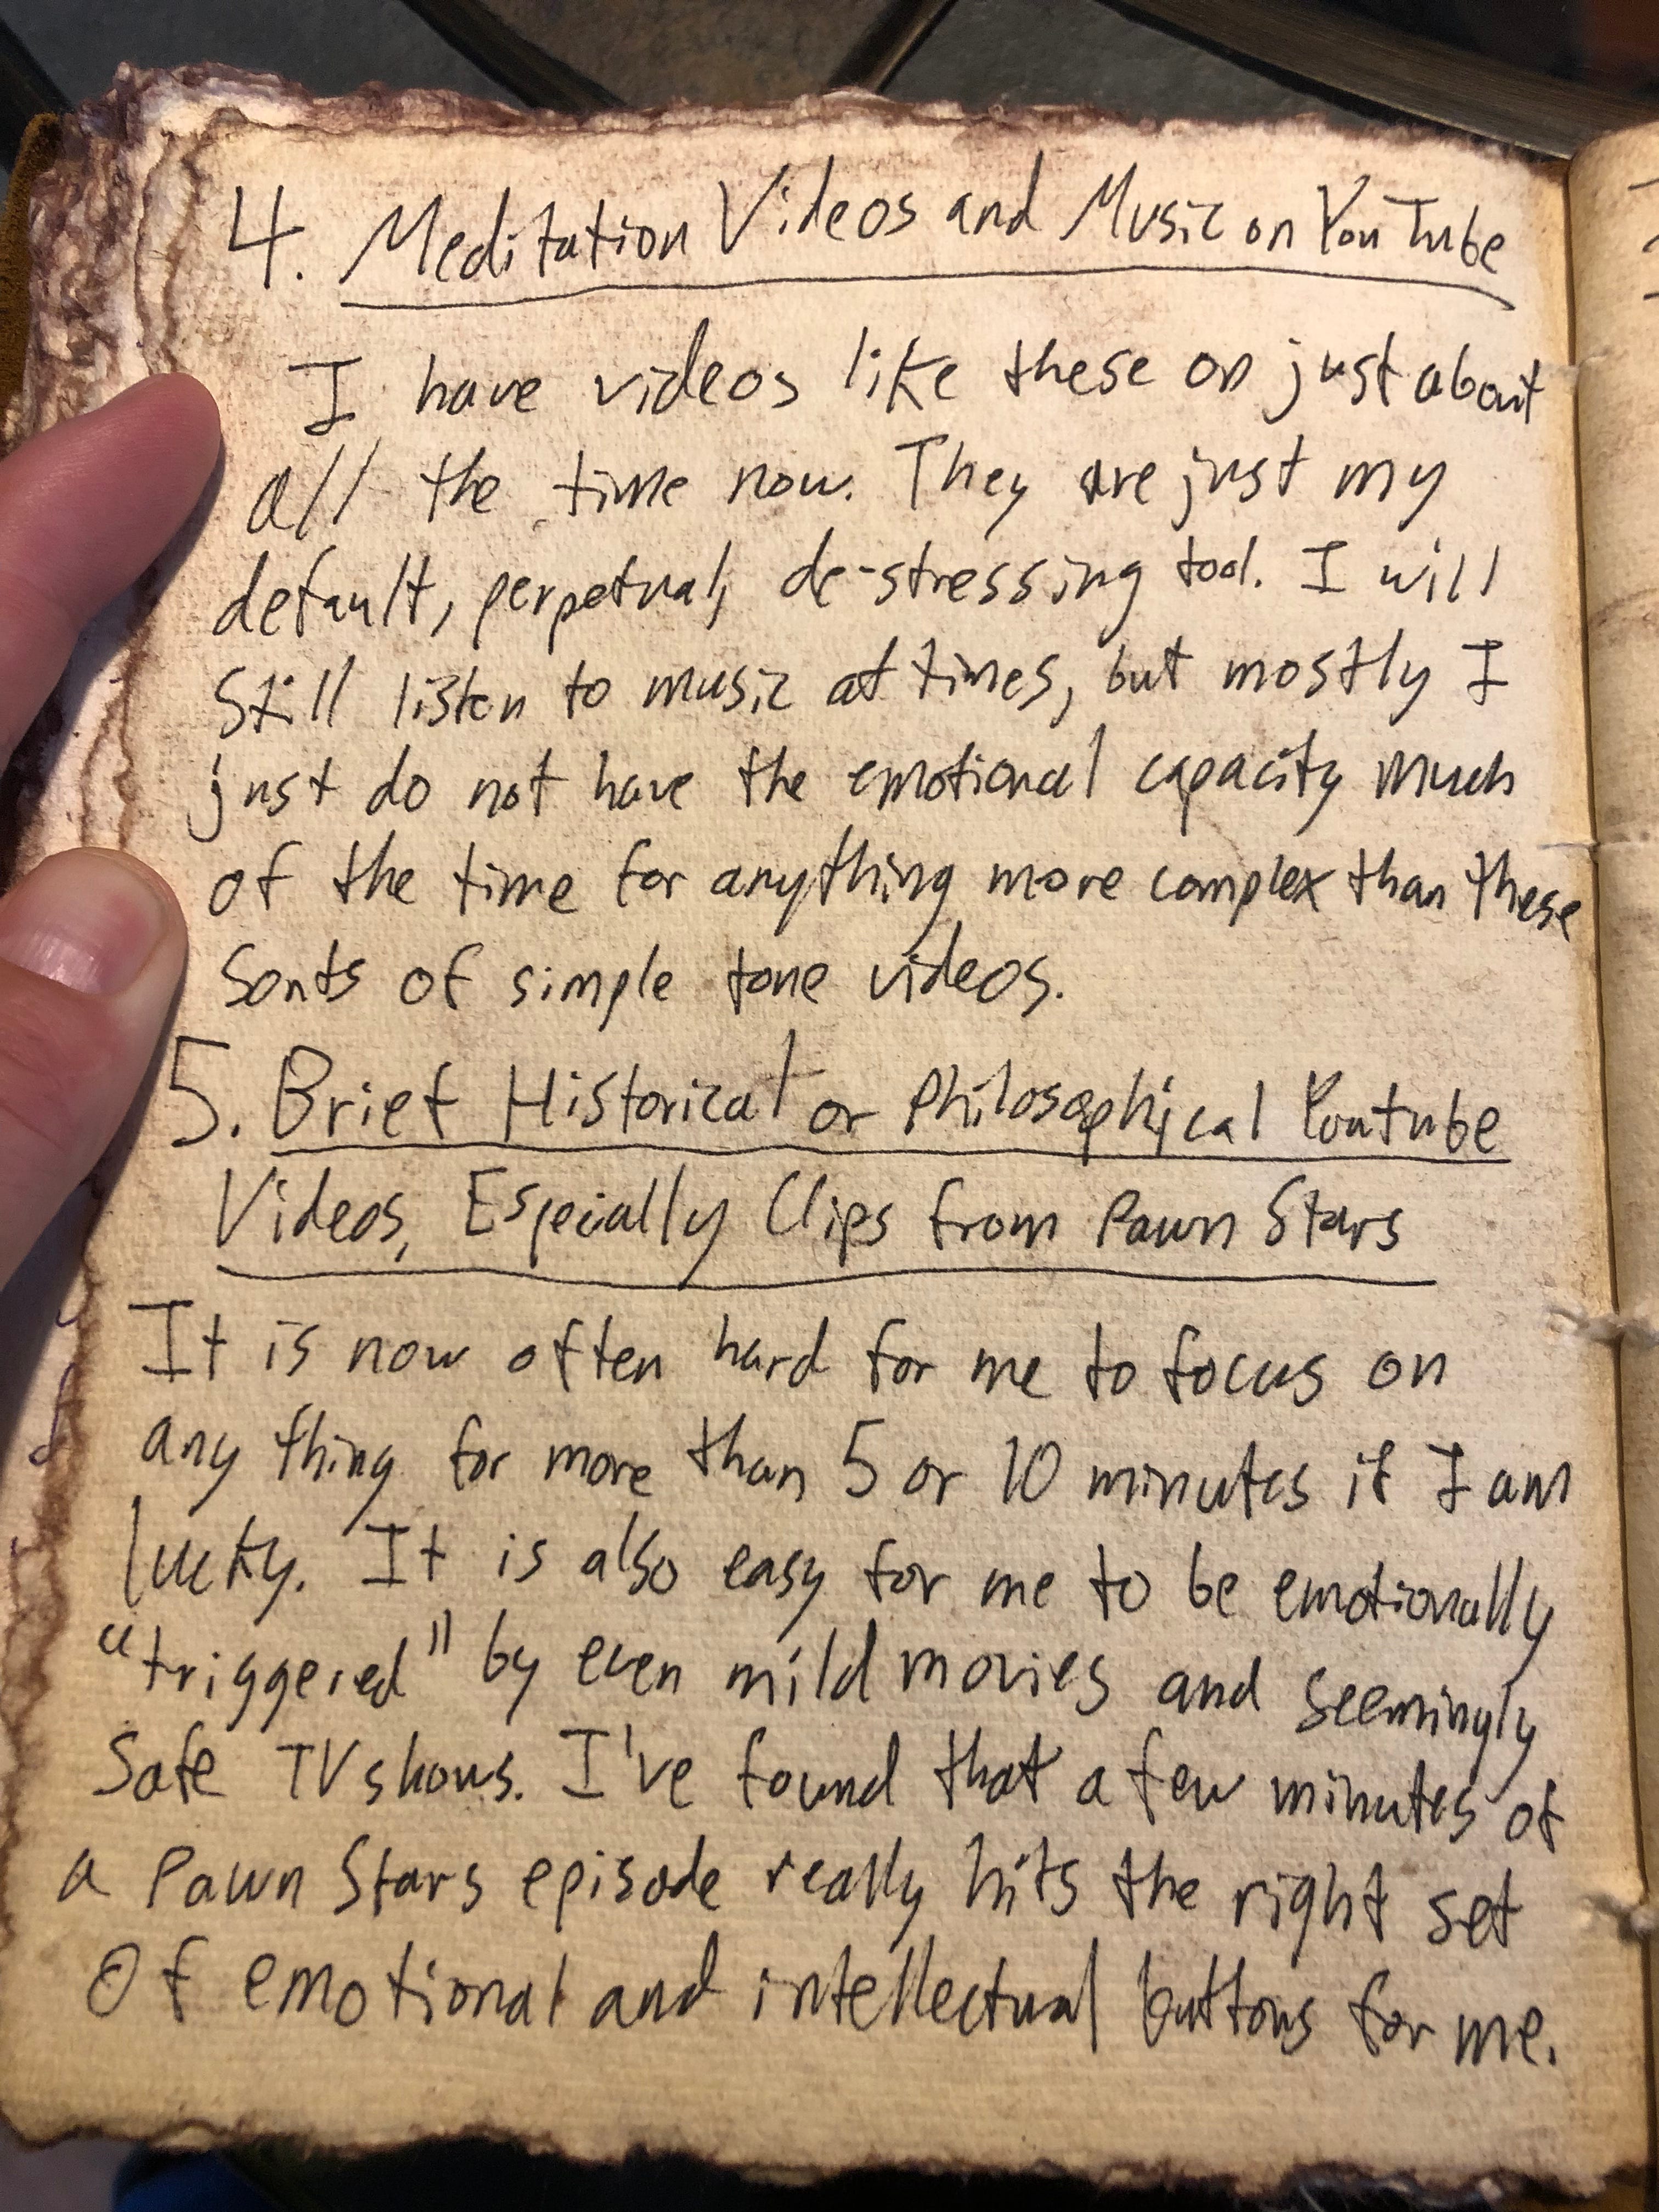 4. Meditation Videos and Music on YouTube
I have videos like these on just about
all the time now. They are just my
default, perpetual, de-stressing tool. I will
still listen to music at times, but mostly I
just do not have the emotional capacity much
of the time for anything more complex than these
sorts of simple tone videos.
5. Brief Historical or Philosophical Youtube
Videos, Especially Clips from Pawn Stars
It is now often hard for me to focus on
any thing for more than 5 or 10 minutes if I am
lucky. It is also easy for me to be emotionally
"triggered" by even mild movies and seemingly
safe TV shows. I've found that a few minutes of
a Pawn Stars episode really hits the right set
of emotional and intellectual buttons for me.